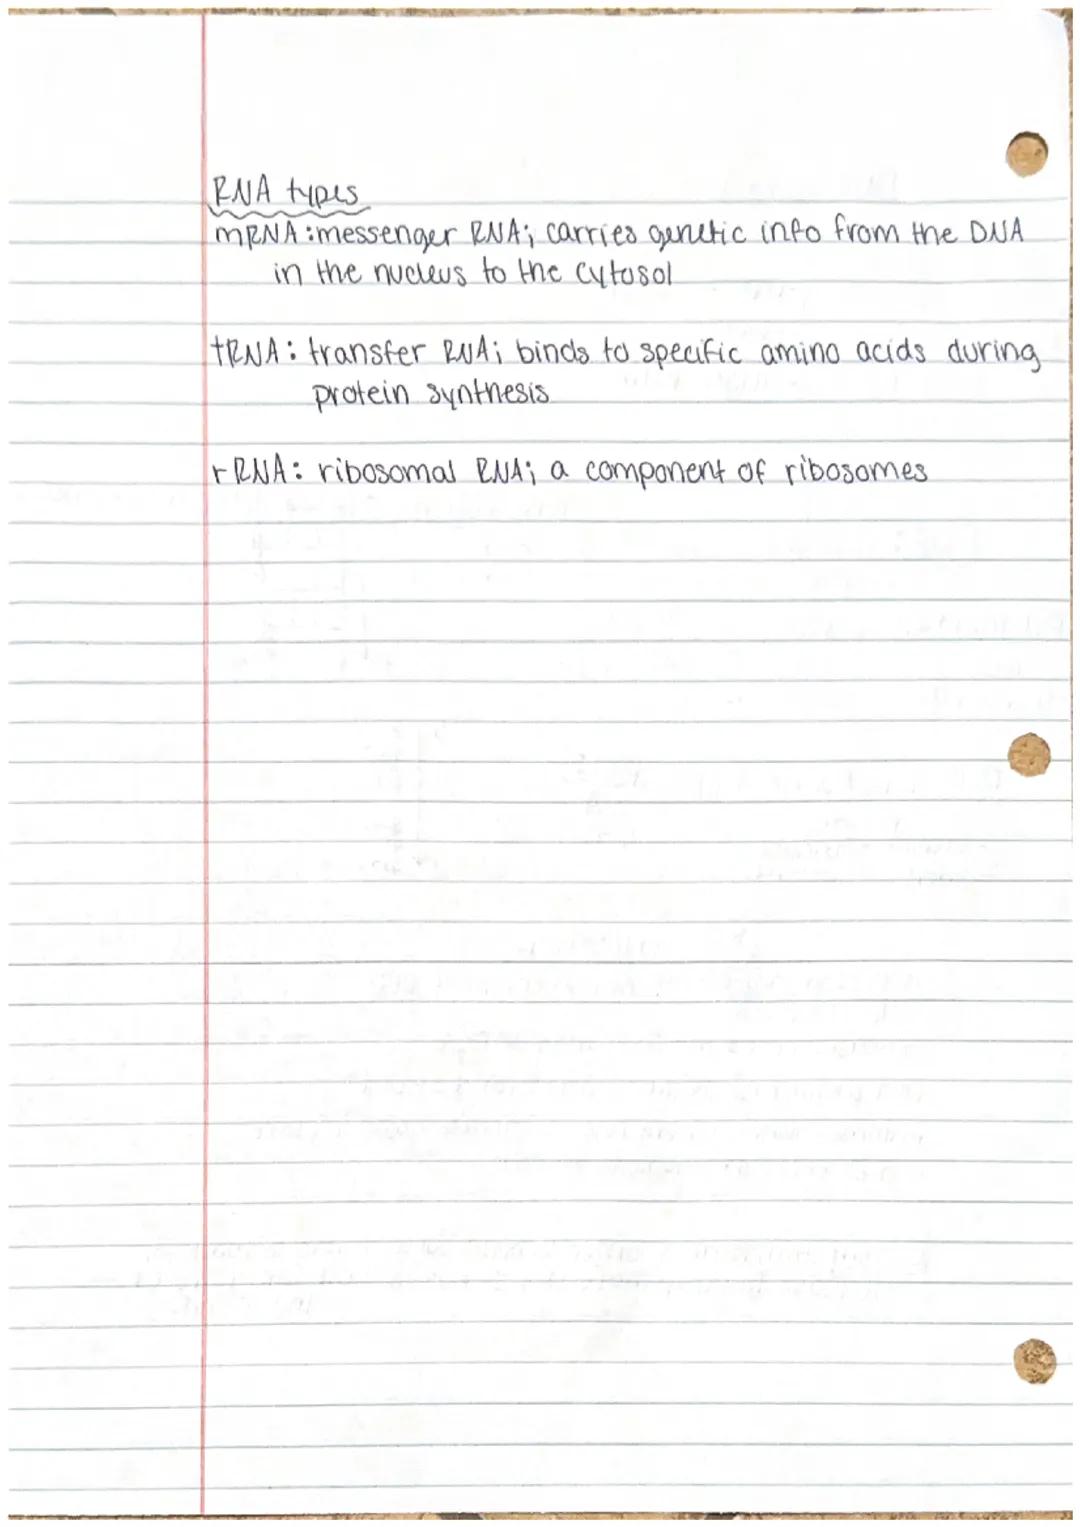 RNA types
mRNA: messenger RNA; carries genetic info from the DNA
in the nucleus to the cytosol
tRNA: transfer RNA; binds to specific amino acids during
protein synthesis
rRNA: ribosomal RNA; a component of ribosomes